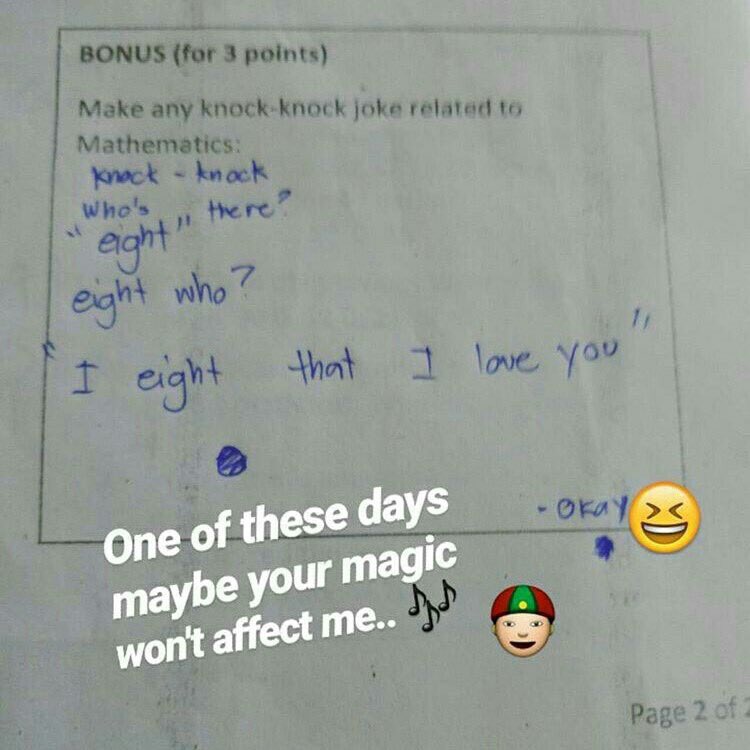 BONUS (for 3 points)
Make any knock-knock joke related to
Mathematics:
knock - knock
Who's there?
"eight"
eight who?
"I eight that I love you"
- okay
One of these days
maybe your magic
won't affect me..
Page 2 of 2